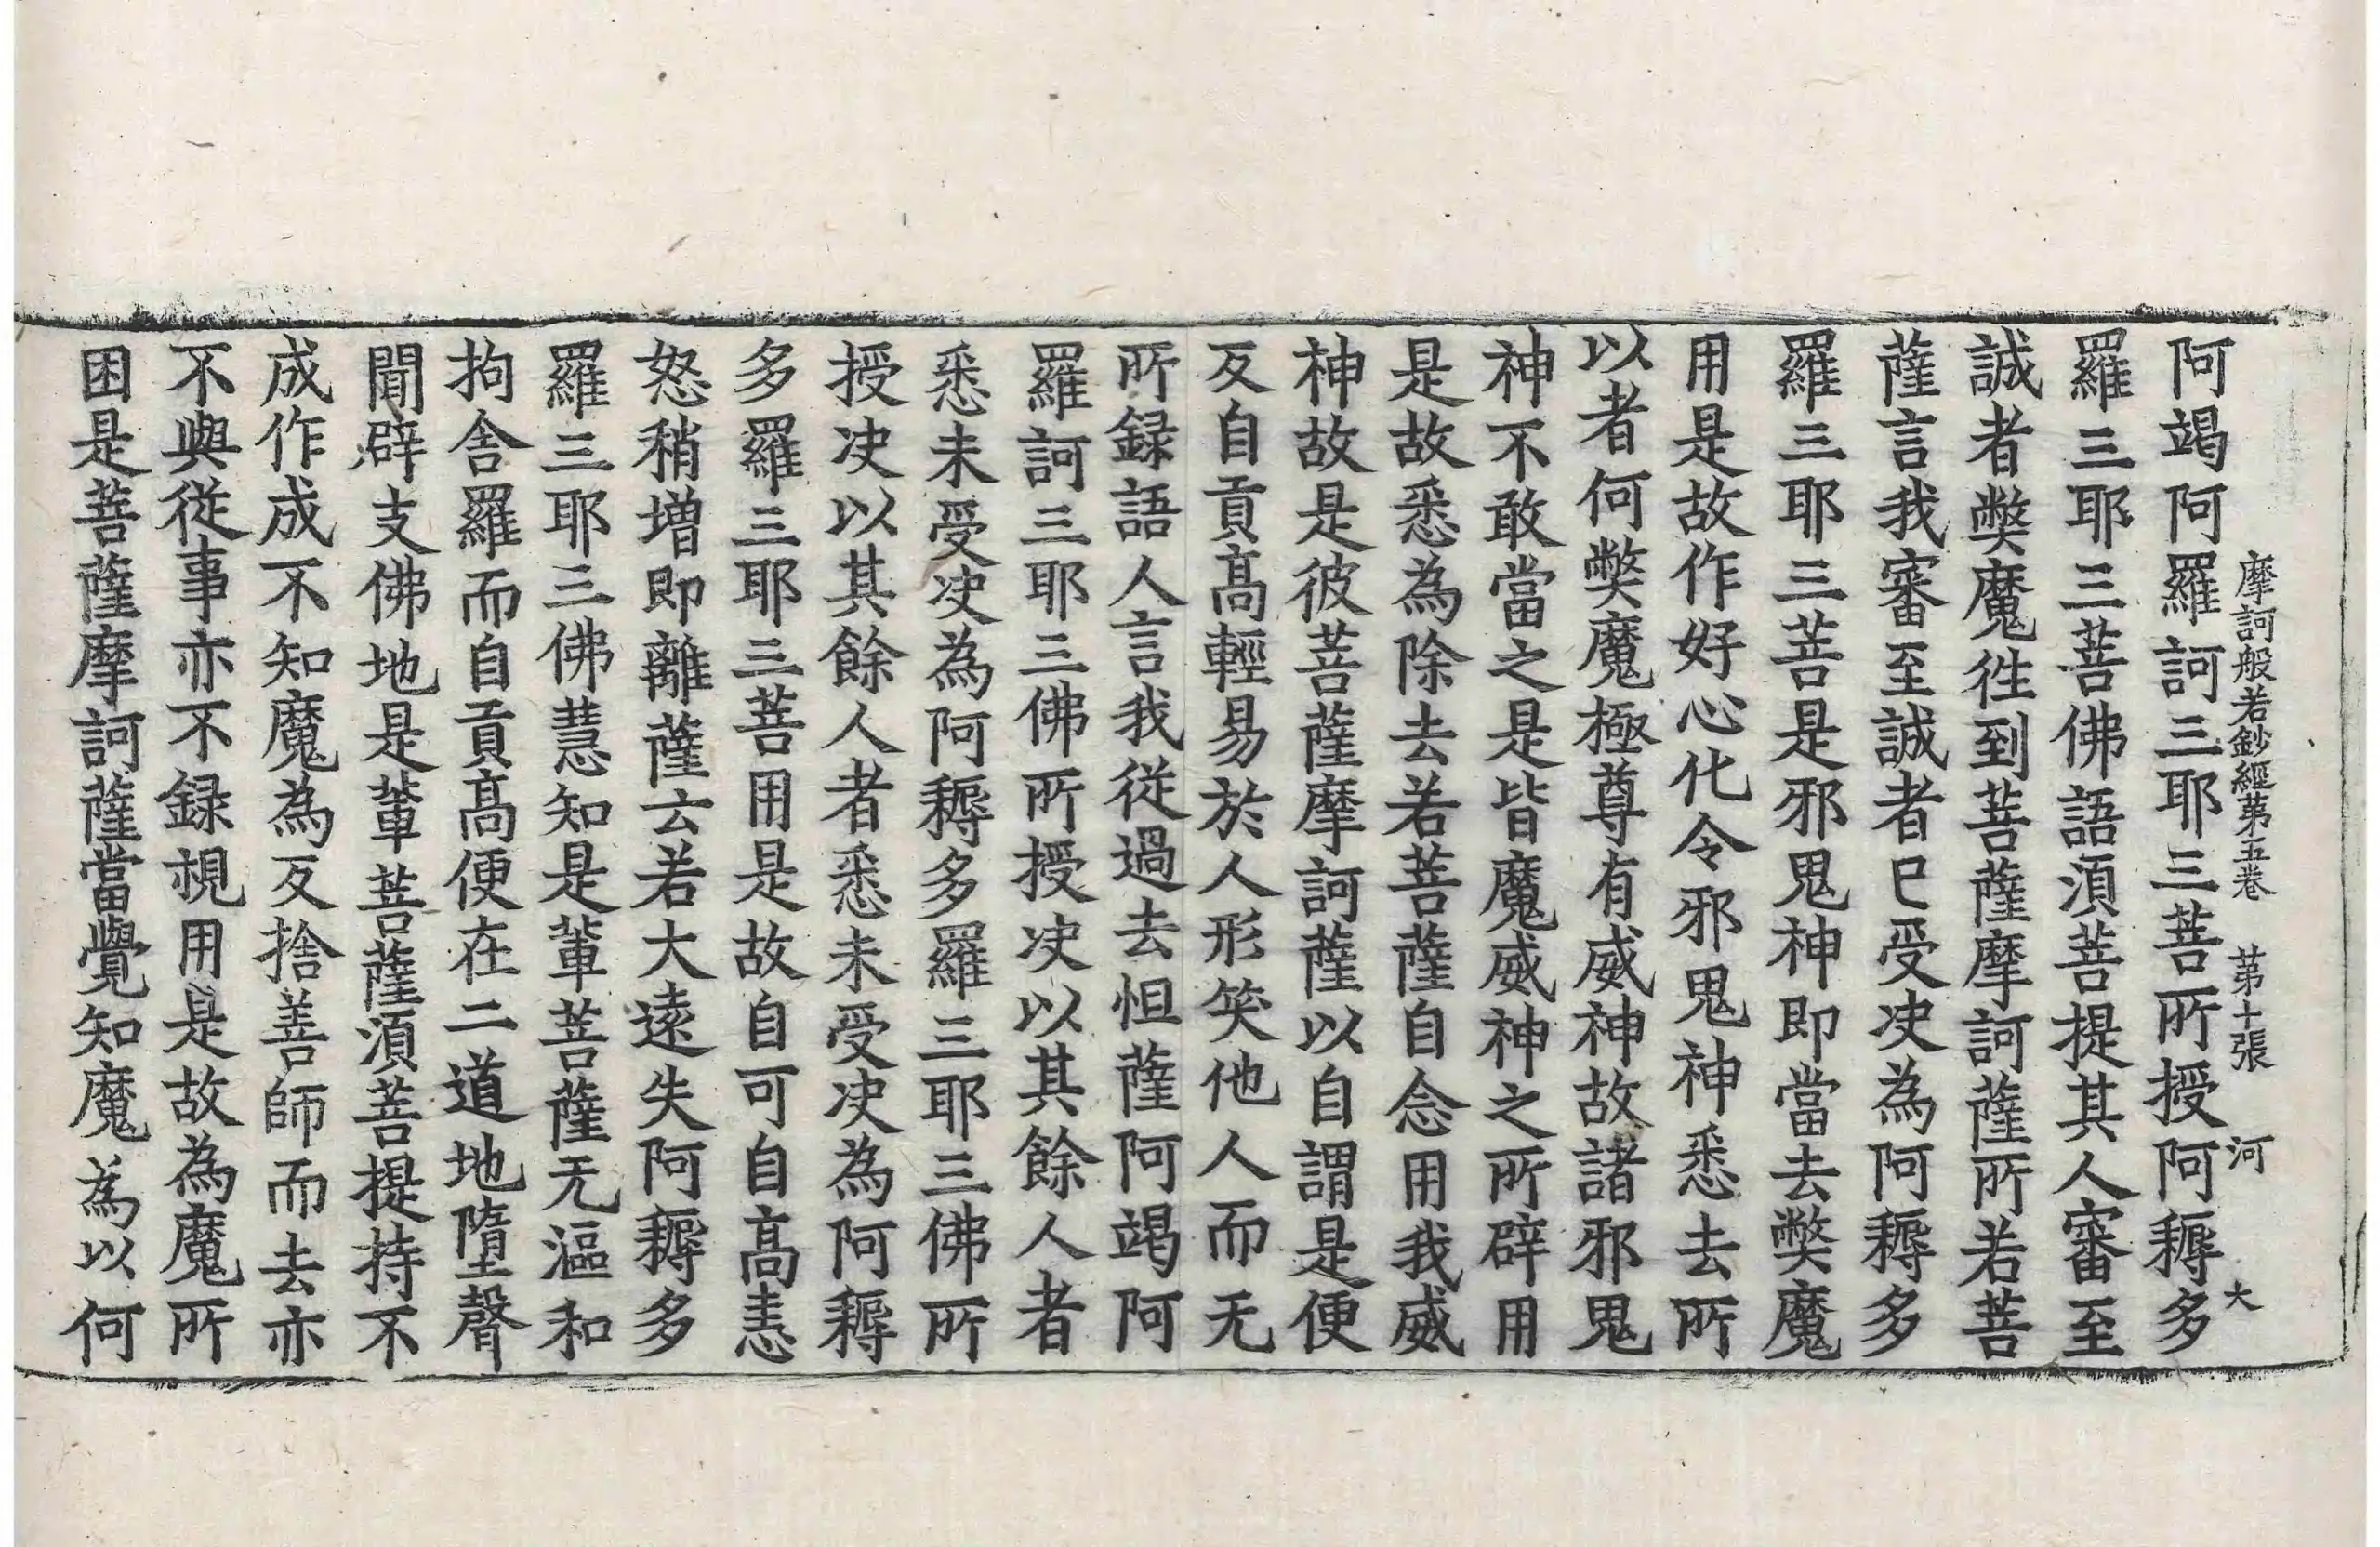 摩訶般若鈔經第五卷　第十張　河　大
阿竭阿羅訶三耶三菩所授阿耨多
羅三耶三菩佛語須菩提其人審至
誠者弊魔徃到菩薩摩訶薩所若菩
薩言我審至誠者已受决為阿耨多
羅三耶三菩是邪鬼神即當去弊魔
用是故作好心化令邪鬼神悉去所
以者何弊魔極尊有威神故諸邪鬼
神不敢當之是皆魔威神之所辟用
是故悉為除去若菩薩自念用我威
神故是彼菩薩摩訶薩以自謂是便
反自貢高輕易於人形笑他人而无
所録語人言我從過去怛薩阿竭阿
羅訶三耶三佛所授决以其餘人者
悉未受决為阿耨多羅三耶三佛所
授决以其餘人者悉未受决為阿耨
多羅三耶三菩用是故自可自高恚
怒稍增即離薩云若大遠失阿耨多
羅三耶三佛慧知是輩菩薩无漚和
拘舍羅而自貢高便在二道地墮聲
聞辟支佛地是輩菩薩須菩提持不
成作成不知魔為反捨善師而去亦
不與從事亦不録視用是故為魔所
困是菩薩摩訶薩當覺知魔為以何